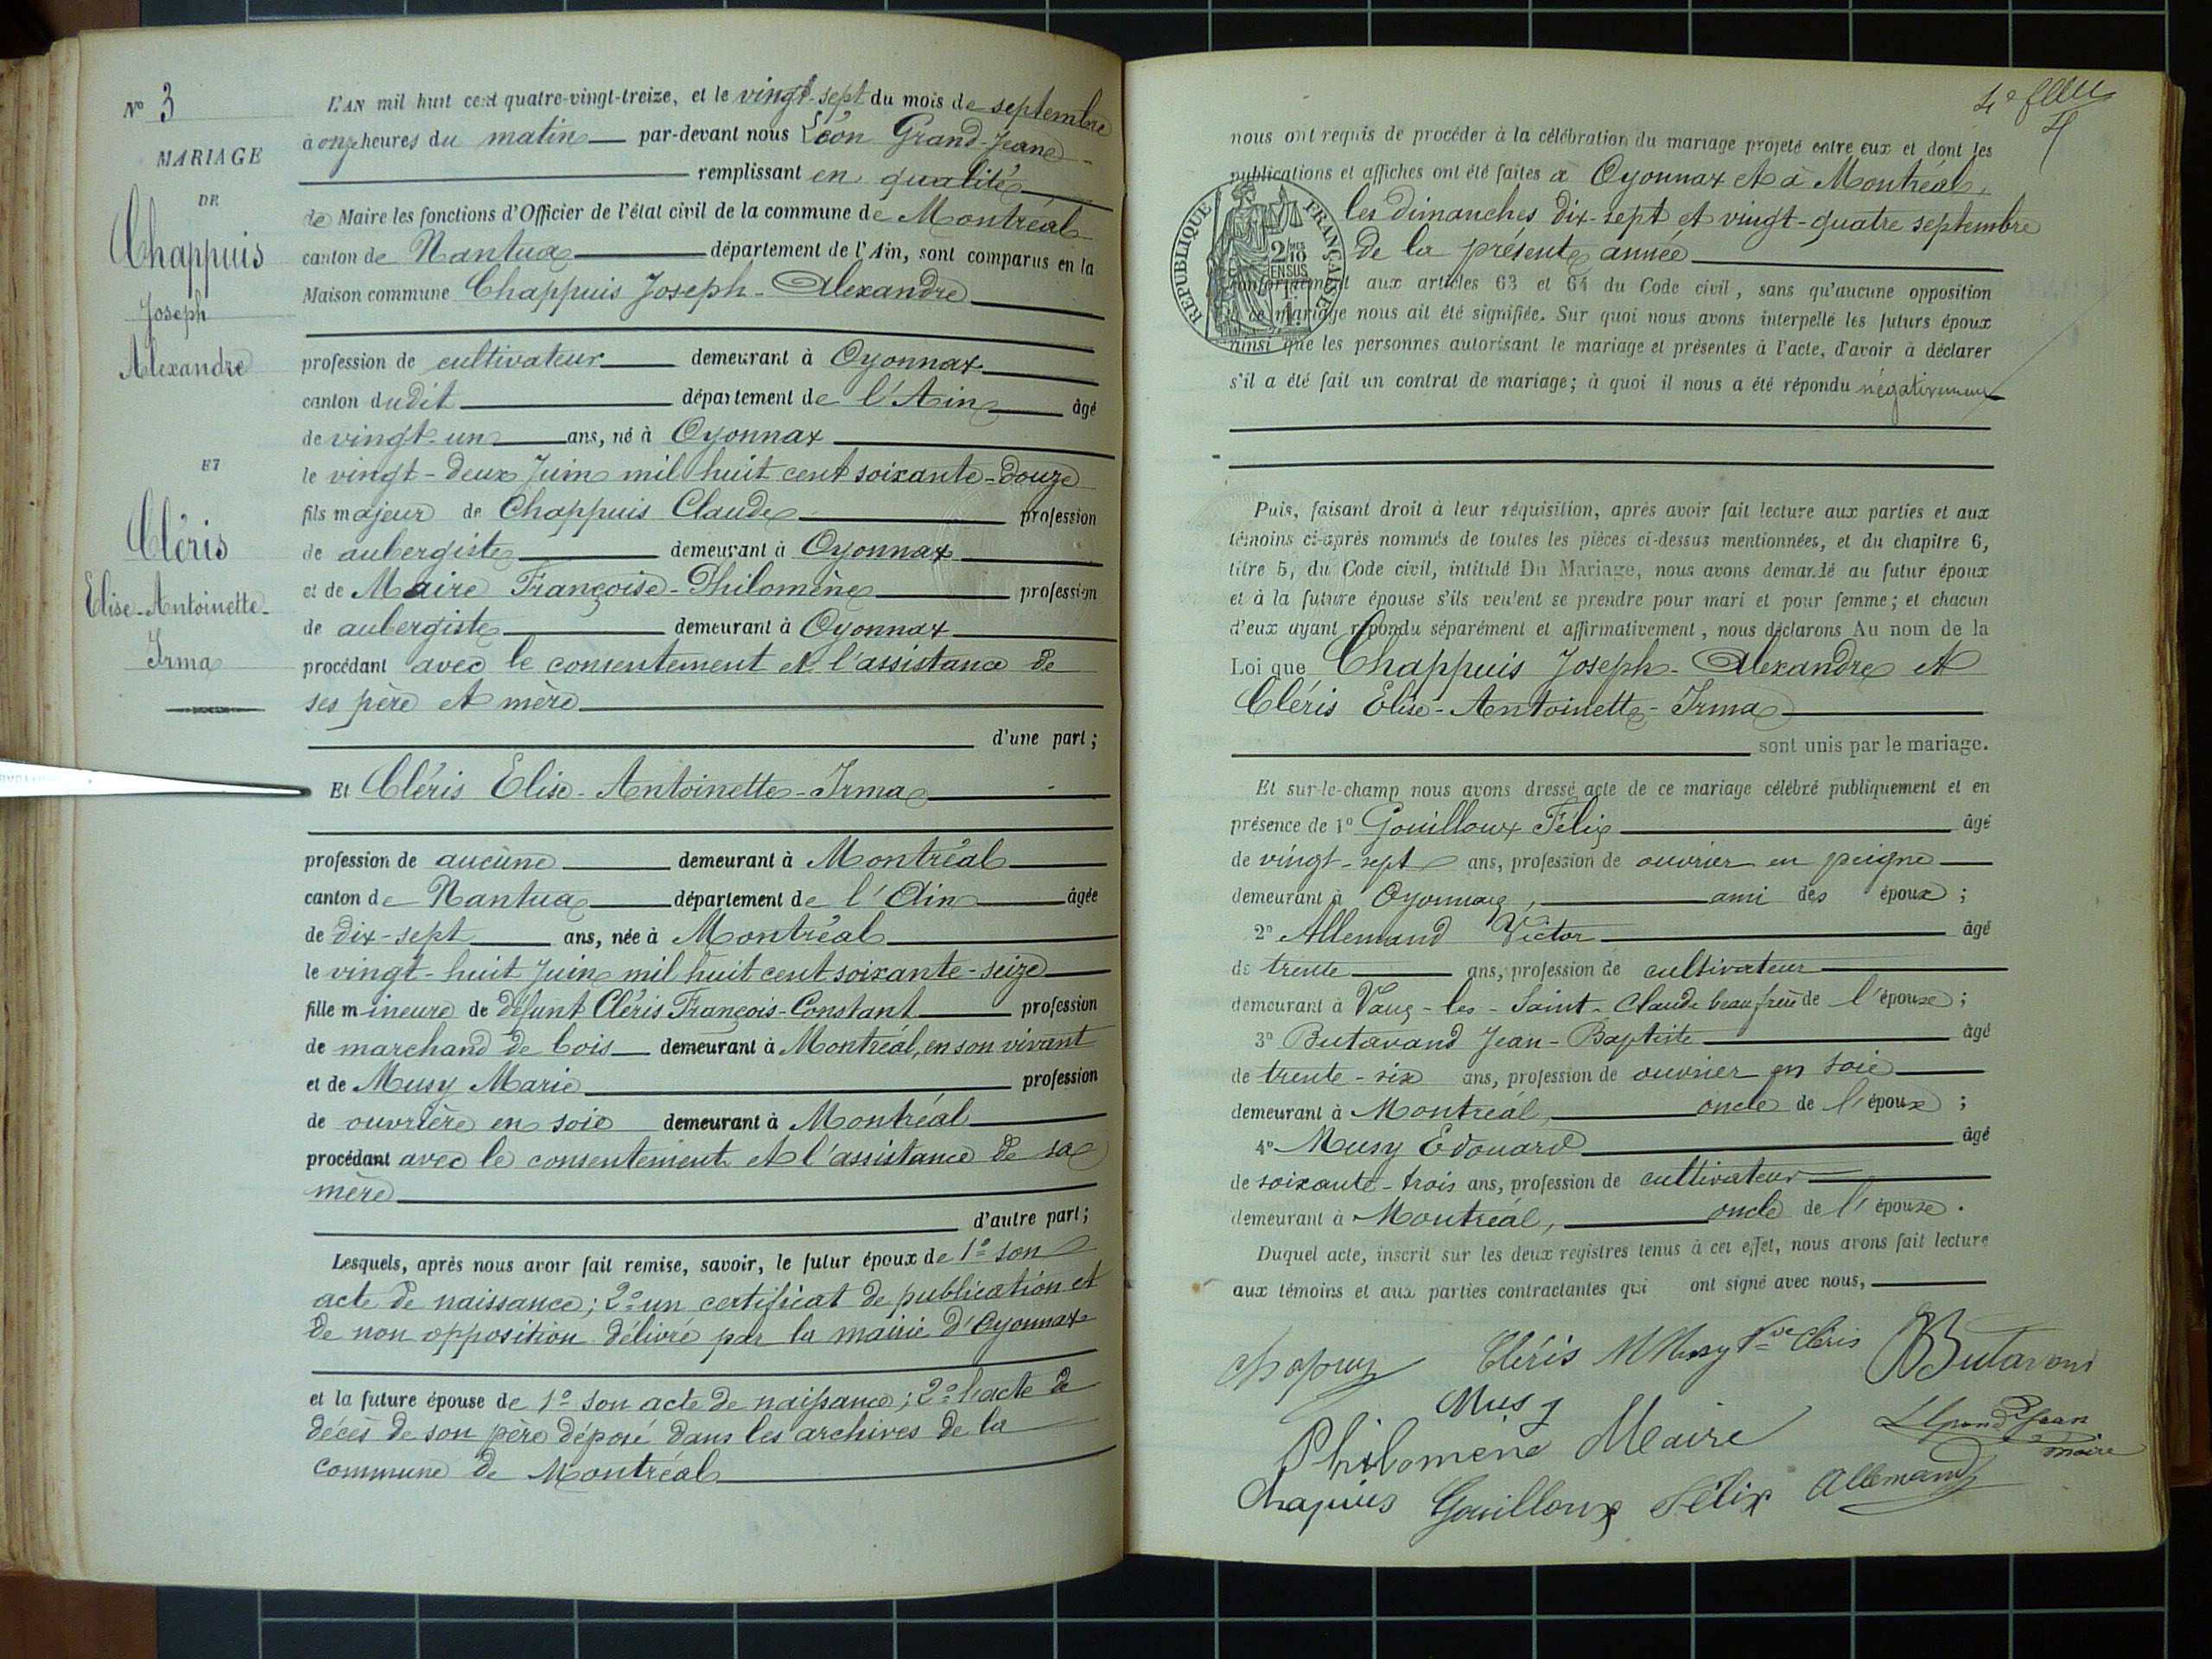 N° 3
MARIAGE
DE
Chappuis
Joseph
Alexandre
ET
Cléris
Elise-Antoinette-
Irma
L'AN mil huit cent quatre-vingt-treize, et le vingt-sept du mois de septembre
à onze heures du matin par-devant nous Léon Grand-Jean
remplissant en qualité
de Maire les fonctions d'Officier de l'état civil de la commune de Montréal
canton de Nantua département de l'Ain, sont comparus en la
Maison commune Chappuis Joseph-Alexandre
profession de cultivateur demeurant à Oyonnax
canton dudit département de l'Ain âgé
de vingt-un ans, né à Oyonnax
le vingt-deux Juin mil huit cent soixante-douze
fils majeur de Chappuis Claude profession
de aubergiste demeurant à Oyonnax
et de Maire Françoise-Philomène profession
de aubergiste demeurant à Oyonnax
procédant avec le consentement et l'assistance de
ses père et mère
d'une part;
Et Cléris Elise-Antoinette-Irma
profession de aucune demeurant à Montréal
canton de Nantua département de l'Ain âgée
de dix-sept ans, née à Montréal
le vingt-huit Juin mil huit cent soixante-seize
fille mineure de défunt Cléris François-Constant profession
de marchand de bois demeurant à Montréal, en son vivant
et de Musy Marie profession
de ouvrière en soie demeurant à Montréal
procédant avec le consentement et l'assistance de sa
mère
d'autre part;
Lesquels, après nous avoir fait remise, savoir, le futur époux de 1° son
acte de naissance; 2° un certificat de publication et
de non opposition délivré par la mairie d'Oyonnax
et la future épouse de 1° son acte de naissance; 2° l'acte de
décès de son père déposé dans les archives de la
commune de Montréal
nous ont requis de procéder à la célébration du mariage projeté entre eux et dont les
publications et affiches ont été faites à Oyonnax et à Montréal,
les dimanches dix-sept et vingt-quatre septembre
de la présente année
REPUBLIQUE FRANÇAISE
2/10
EN SUS
conformément aux articles 63 et 64 du Code civil, sans qu'aucune opposition
à ce mariage nous ait été signifiée. Sur quoi nous avons interpellé les futurs époux
ainsi que les personnes autorisant le mariage et présentes à l'acte, d'avoir à déclarer
s'il a été fait un contrat de mariage; à quoi il nous a été répondu négativement
Puis, faisant droit à leur réquisition, après avoir fait lecture aux parties et aux
témoins ci-après nommés de toutes les pièces ci-dessus mentionnées, et du chapitre 6,
titre 5, du Code civil, intitulé Du Mariage, nous avons demandé au futur époux
et à la future épouse s'ils veulent se prendre pour mari et pour femme; et chacun
d'eux ayant répondu séparément et affirmativement, nous déclarons Au nom de la
Loi que Chappuis Joseph-Alexandre et
Cléris Elise-Antoinette-Irma
sont unis par le mariage.
Et sur-le-champ nous avons dressé acte de ce mariage célébré publiquement et en
présence de 1° Gouilloux Félix âgé
de vingt-sept ans, profession de ouvrier en peigne
demeurant à Oyonnax, ami des époux;
2° Allemand Victor âgé
de trente ans, profession de cultivateur
demeurant à Vaux-les-Saint-Claude beau frère de l'épouse;
3° Butavand Jean-Baptiste âgé
de trente-six ans, profession de ouvrier en soie
demeurant à Montréal, oncle de l'époux;
4° Musy Edouard âgé
de soixante-trois ans, profession de cultivateur
demeurant à Montréal, oncle de l'épouse.
Duquel acte, inscrit sur les deux registres tenus à cet effet, nous avons fait lecture
aux témoins et aux parties contractantes qui ont signé avec nous,
Chapuy Cléris M Musy Vve Cléris B Butavand
Musy
Philomène Maire L Grand Jean
maire
Chapuis Gouilloux Félix Allemand